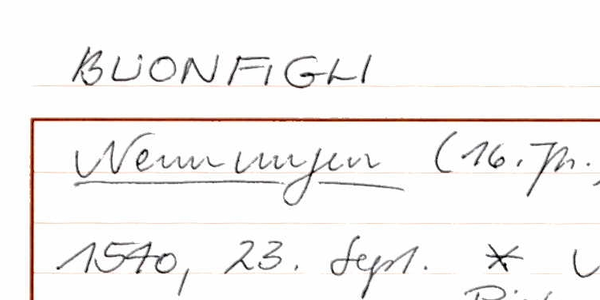 BUONFIGLI
Nennungen (16. Jh.)
1570, 23. Sept. *